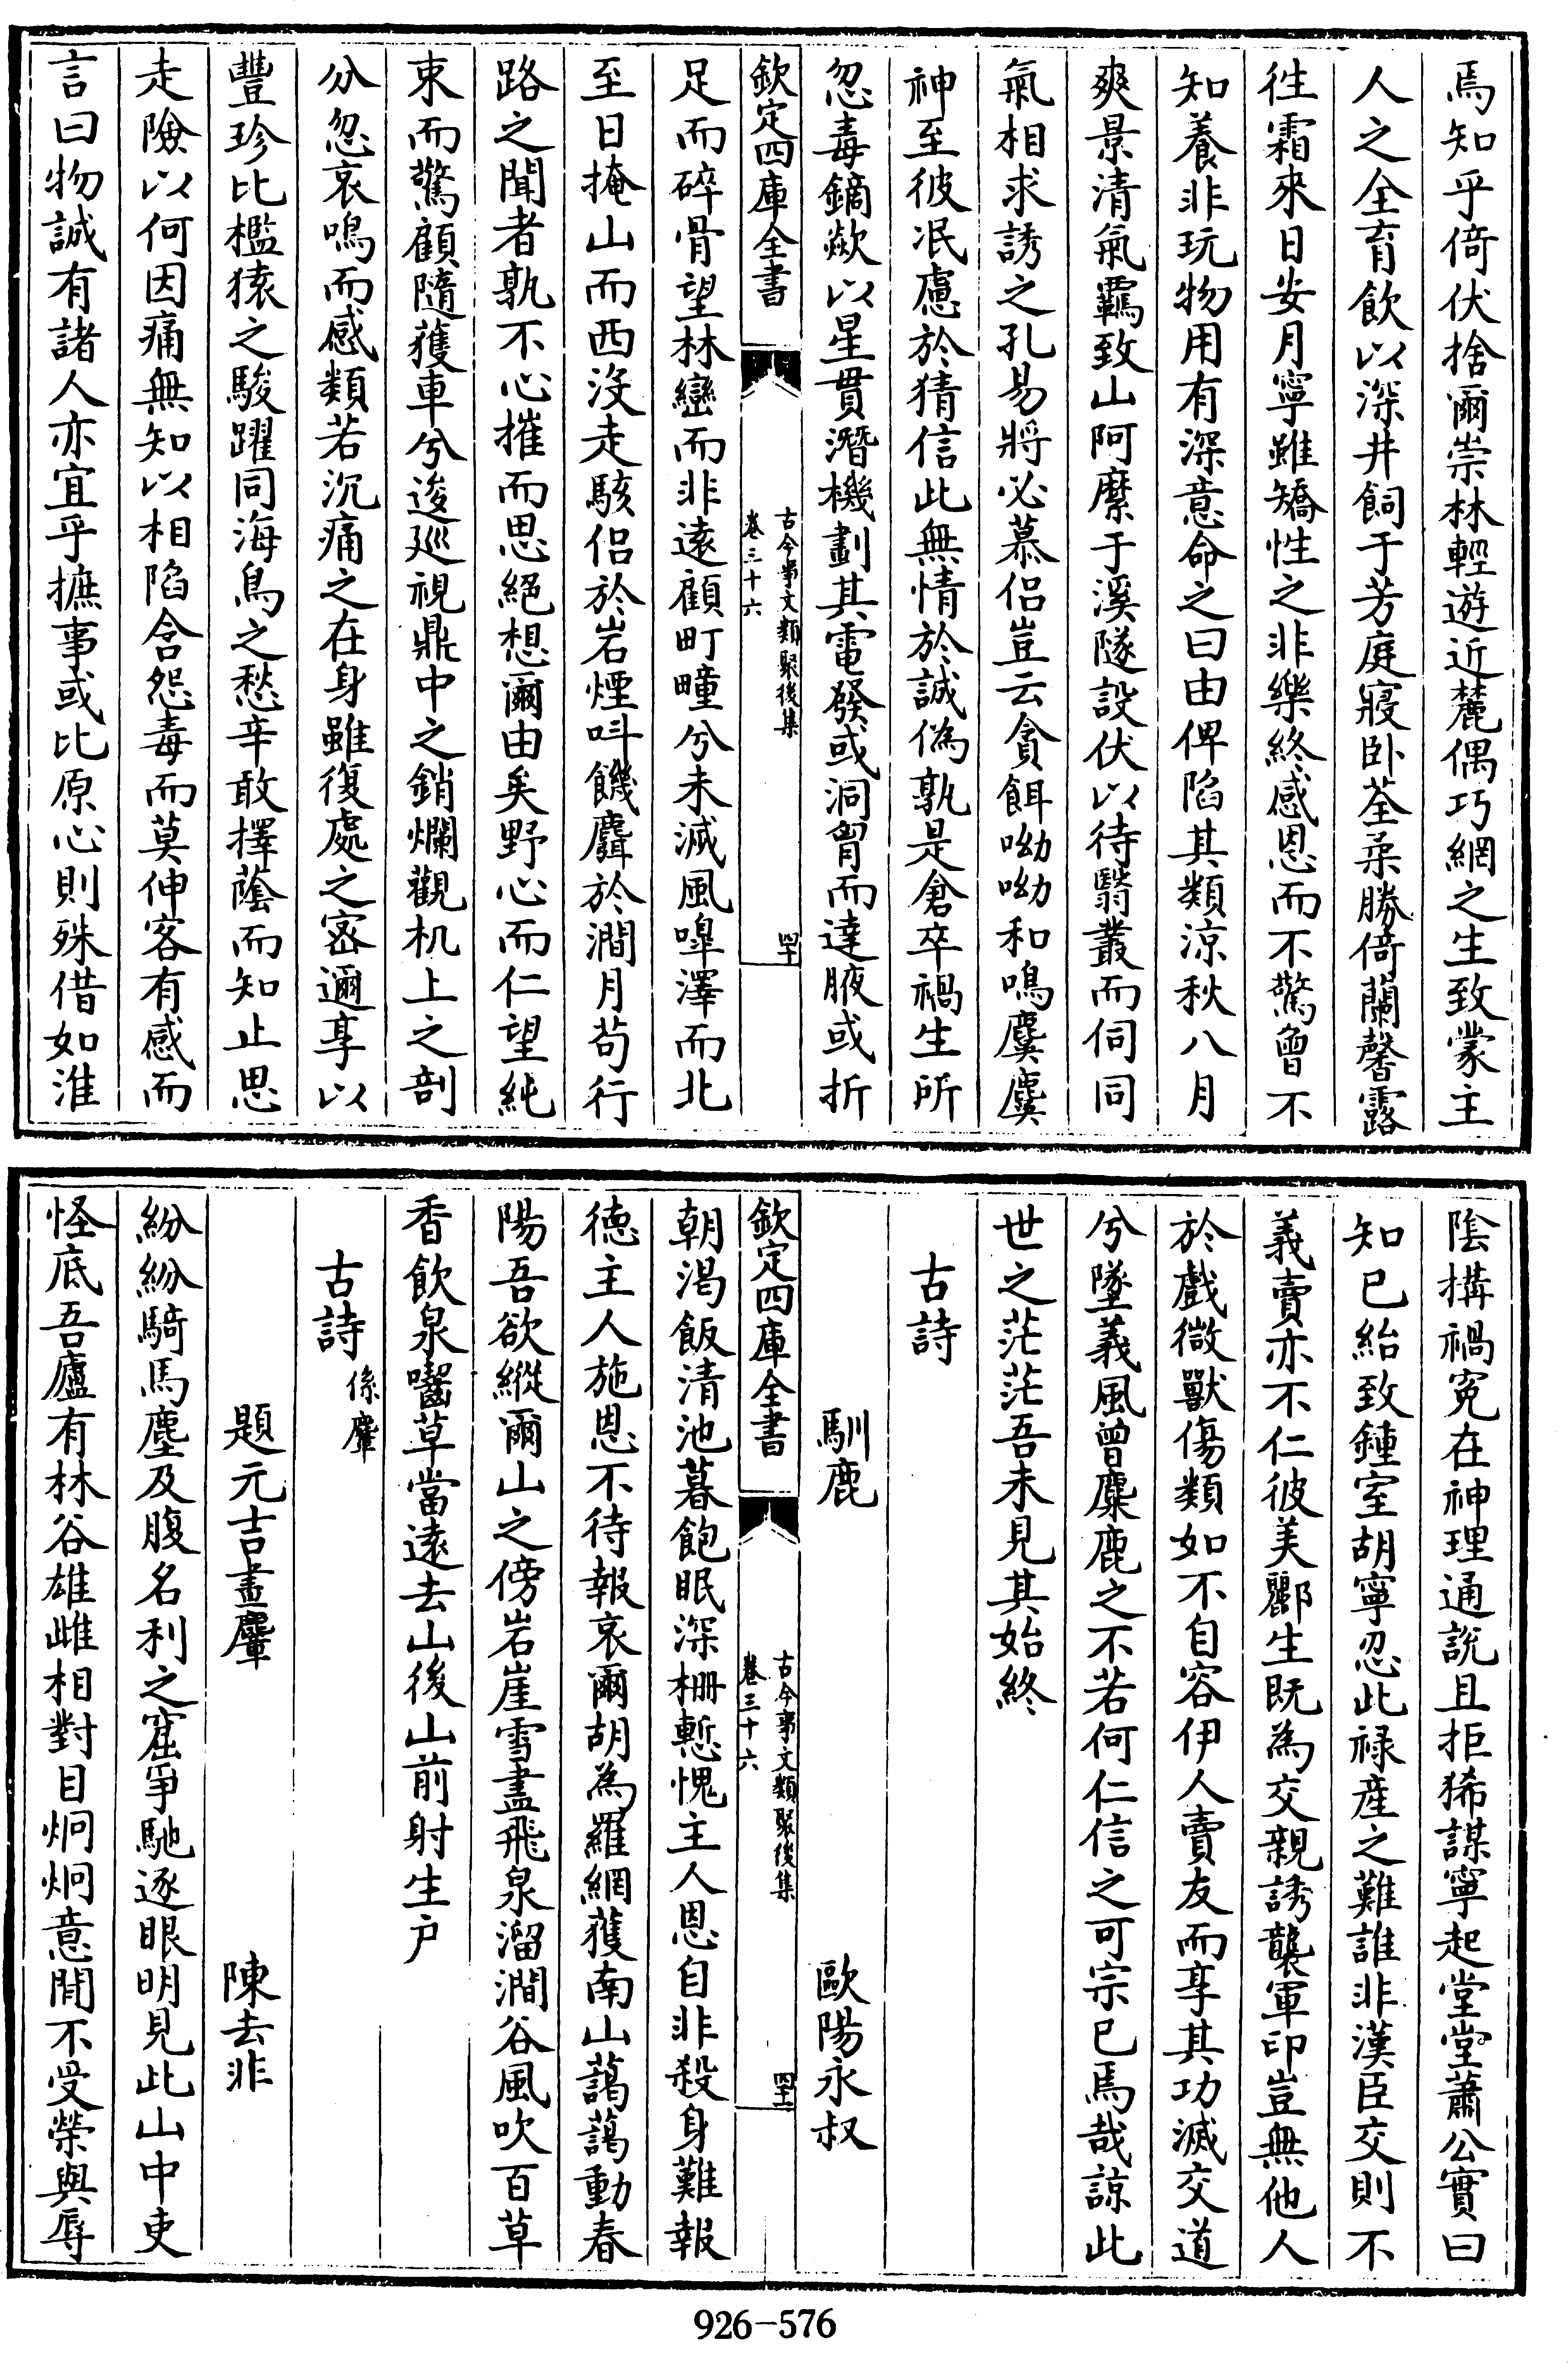 焉知乎倚伏捨爾崇林輕遊近麓偶巧網之生致蒙主
人之全育飲以深井飼于芳庭寢卧荃柔勝倚蘭馨露
徃霜來日安月寧雖矯性之非樂終感恩而不驚曾不
知養非玩物用有深意命之曰由俾陷其類涼秋八月
爽景清氣羈致山阿縻于溪隧設伏以待翳叢而伺同
氣相求誘之孔易將必慕侣豈云貪餌呦呦和鳴麌麌
神至彼泯慮於猜信此無情於誠偽孰是倉卒禍生所
忽毒鏑歘以星貫潛機劃其電發或洞胷而達腋或折
欽定四庫全書
古今事文類聚後集
卷三十六
四十
足而碎骨望林巒而非遠顧町疃兮未滅風嘷澤而北
至日掩山而西沒走駭侣於岩煙呌饑麛於澗月苟行
路之聞者孰不心摧而思絕想爾由矣野心而仁望純
束而驚顧隨獲車兮逡廵視鼎中之銷爛觀机上之剖
分忽哀鳴而感類若沉痛之在身雖復處之密邇享以
豐珍比檻猿之駿躍同海鳥之愁辛敢擇蔭而知止思
走險以何因痛無知以相陷含怨毒而莫伸客有感而
言曰物誠有諸人亦宜乎摭事或比原心則殊借如淮
陰搆禍寃在神理通說且拒狶謀寧起堂堂蕭公實曰
知已紿致鍾室胡寧忍此禄產之難誰非漢臣交則不
義賣亦不仁彼美酈生既為交親誘襲軍印豈無他人
於戲微獸傷類如不自容伊人賣友而享其功滅交道
兮墜義風曾麋鹿之不若何仁信之可宗已焉哉諒此
世之茫茫吾未見其始終
古詩
馴鹿 歐陽永叔
欽定四庫全書
古今事文類聚後集
卷三十六
四十一
朝渴飯清池暮飽眠深柵慙愧主人恩自非殺身難報
德主人施恩不待報哀爾胡為羅網獲南山藹藹動春
陽吾欲縱爾山之傍岩崖雪盡飛泉溜澗谷風吹百草
香飲泉囓草當遠去山後山前射生户
古詩係麞
題元吉畫麞 陳去非
紛紛騎馬塵及腹名利之窟爭馳逐眼明見此山中吏
怪底吾廬有林谷雄雌相對目炯炯意閒不受榮與辱
926-576